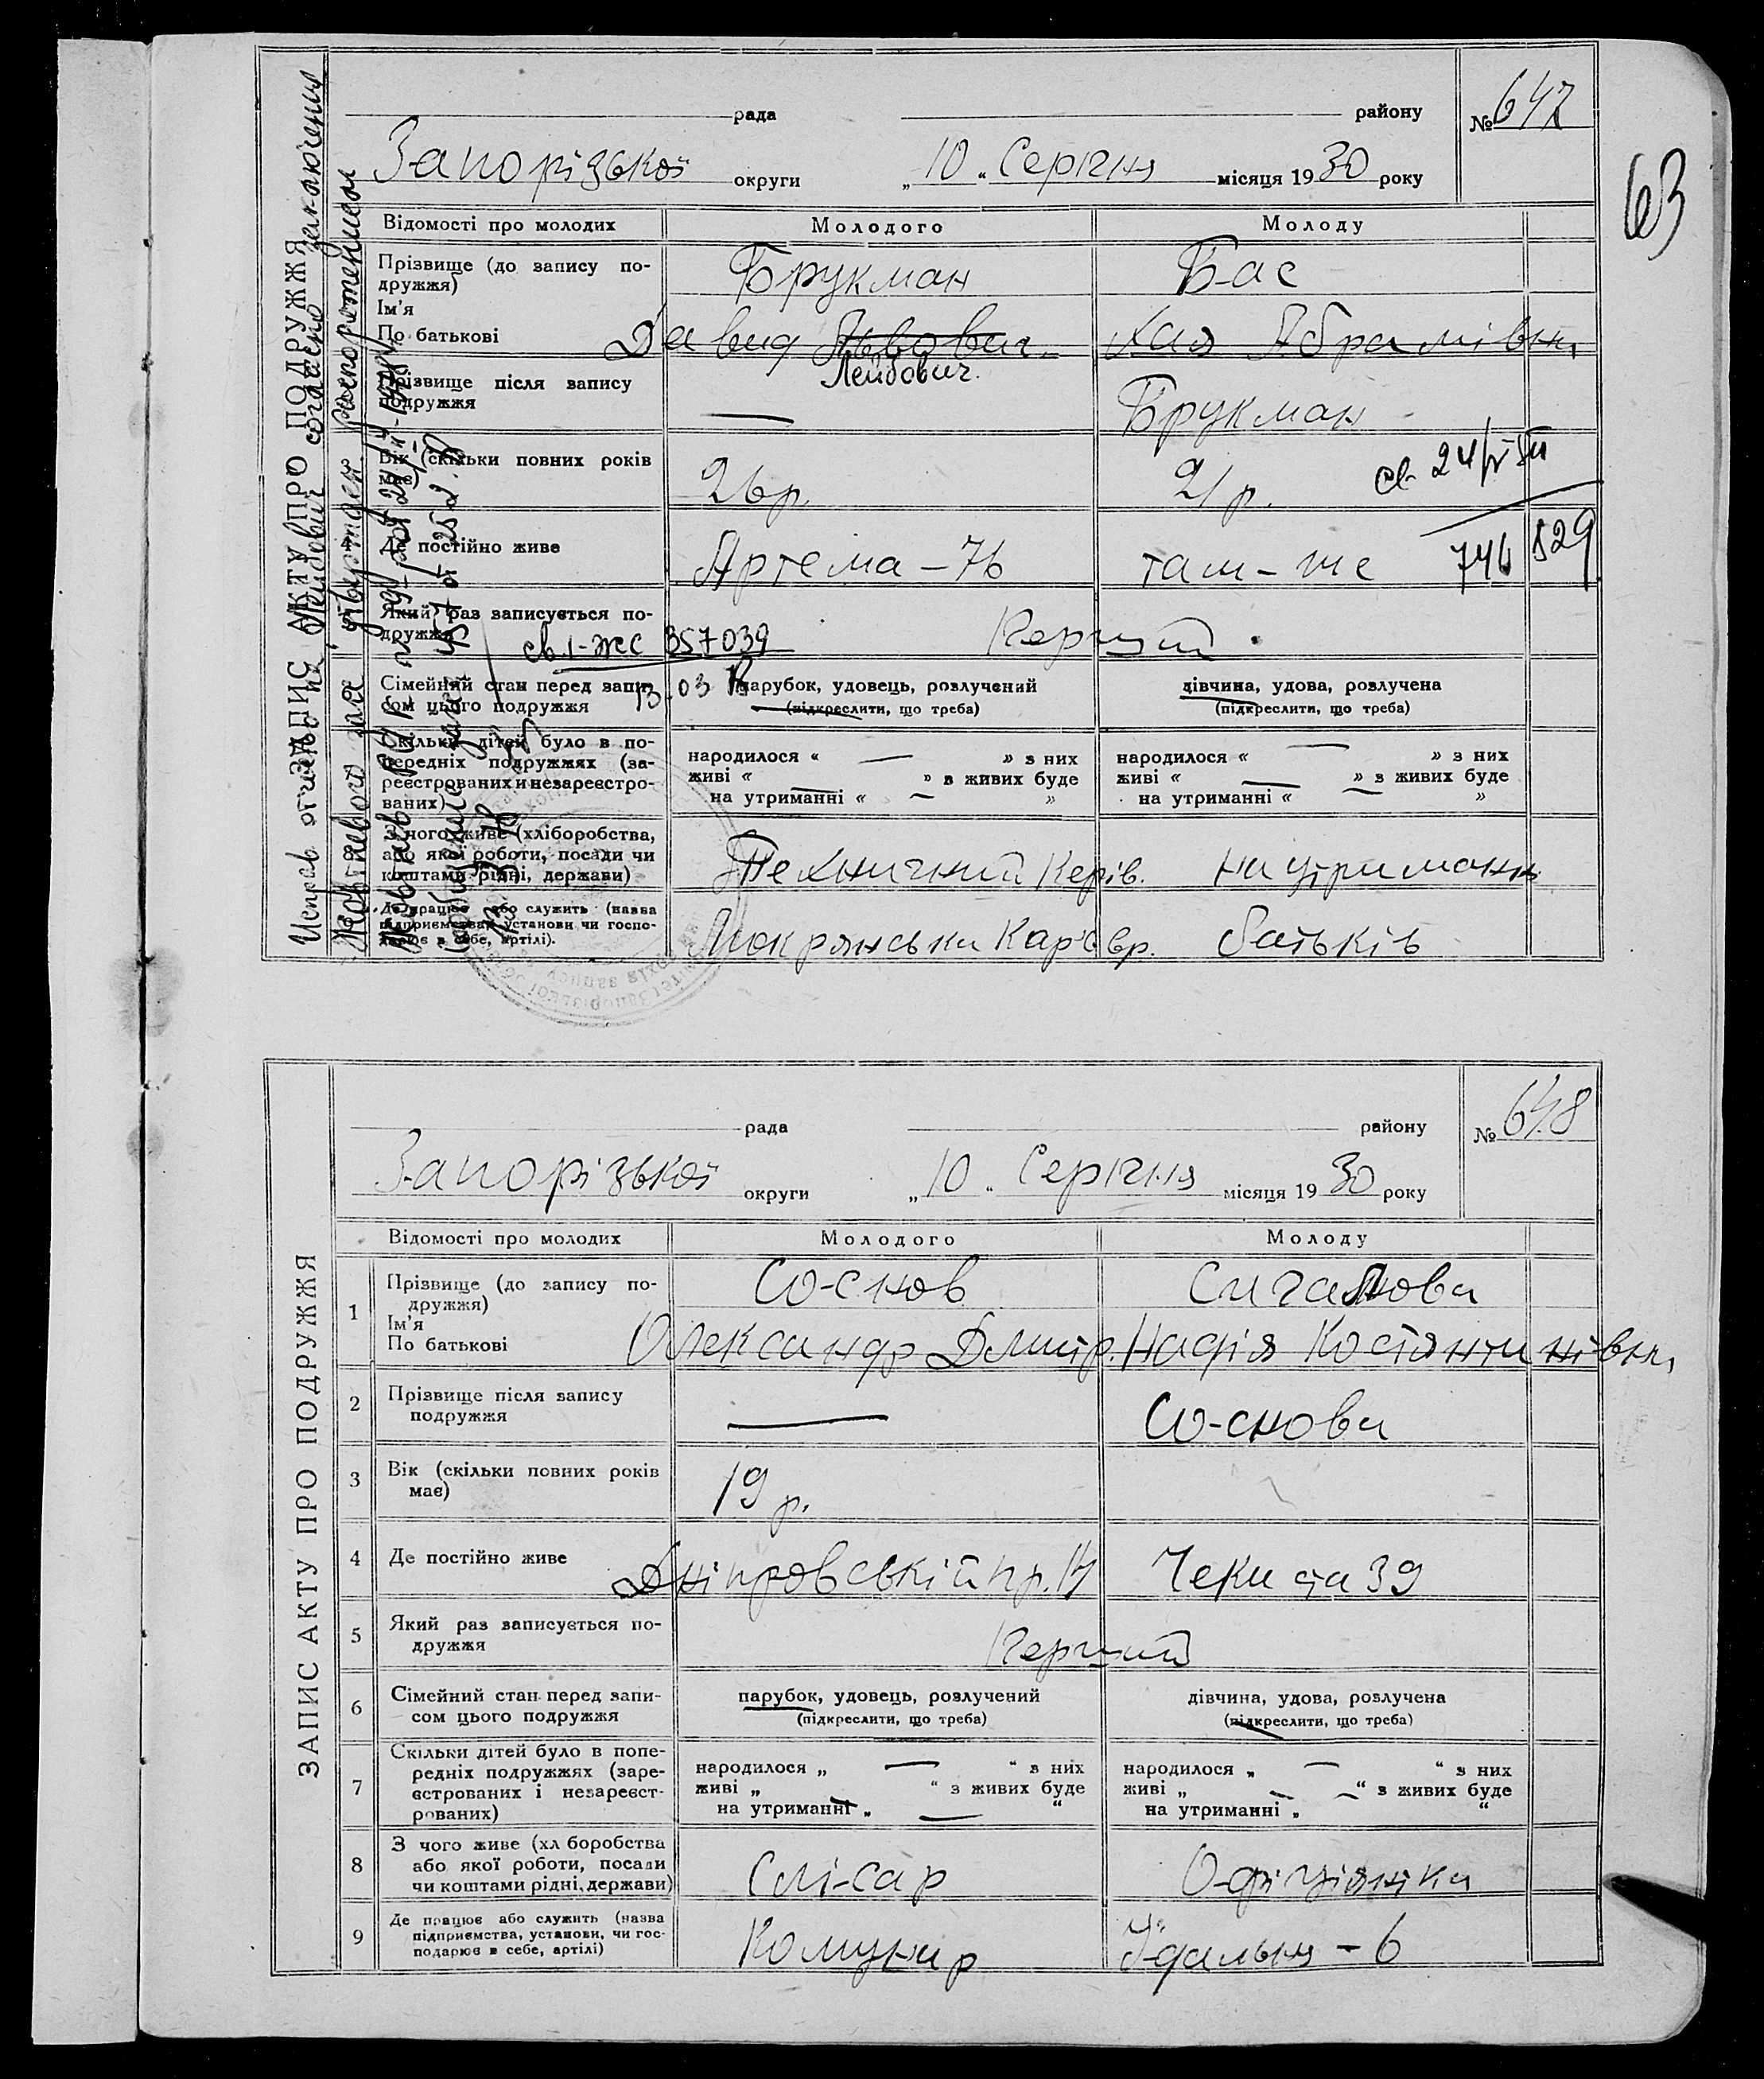 63
ЗАПИС АКТУ ПРО ПОДРУЖЖЯ
рада району № 647
Запорізької округи „10“ Серпня місяця 1930 року
Відомості про молодих Молодого Молоду
Прізвище (до запису по- Брукман Бас
дружжя)
Ім'я
По батькові Давид Хая Абрамівна
Лейбович.
Прізвище після запису
подружжя — Брукман
Вік (скільки повних років
має) 26 р. 21 р.
Де постійно живе Артема – 76 там – же 746 829
Який раз записується по-
дружжя Перший
св. 1-ЖС 357039
Сімейний стан перед запи- парубок, удовець, розлучений дівчина, удова, розлучена
сом цього подружжя (підкреслити, що треба) (підкреслити, що треба)
Скільки дітей було в по- народилося « — » з них народилося « — » з них
передніх подружжях (за- живі « » з живих буде живі « » з живих буде
реєстрованих и незареєстро- на утриманні « — » на утриманні « — »
ваних)
З чого живе (хліборобства,
або якої роботи, посади чи Технични й Керів. на утриманн
коштами рідні, держави)
Де працює або служить (назва
підприємства, установи чи госпо-
дарює в себе, артілі). батьків
Исправ. отчество на Лейбович согласно заключения
ЗАПИС АКТУ ПРО ПОДРУЖЖЯ
рада району № 648
Запорізької округи „10“ Серпня місяця 1930 року
Відомості про молодих Молодого Молоду
1 Прізвище (до запису по- Соснов
дружжя)
Ім'я
По батькові Олександр Дмитр. Надія Костянтинівна
2 Прізвище після запису
подружжя — Соснова
3 Вік (скільки повних років
має) 19 р.
4 Де постійно живе Дніпровській пр. Чекиста 39
5 Який раз записується по-
дружжя Перший
6 Сімейний стан перед запи- парубок, удовець, розлучений дівчина, удова, розлучена
сом цього подружжя (підкреслити, що треба) (підкреслити, що треба)
7 Скільки дітей було в попе- народилося „ — “ з них народилося „ — “ з них
редніх подружжях (заре- живі „ “ з живих буде живі „ — “ з живих буде
єстрованих і незареєст- на утриманні „ — “ на утриманні „ “
рованих)
8 З чого живе (хл боробства
або якої роботи, посади Слісар Офіціянтка
чи коштами рідні, держави)
9 Де працює або служить (назва
підприємства, установи, чи гос- Комунар Їдальня – 6
подарює в себе, артілі)